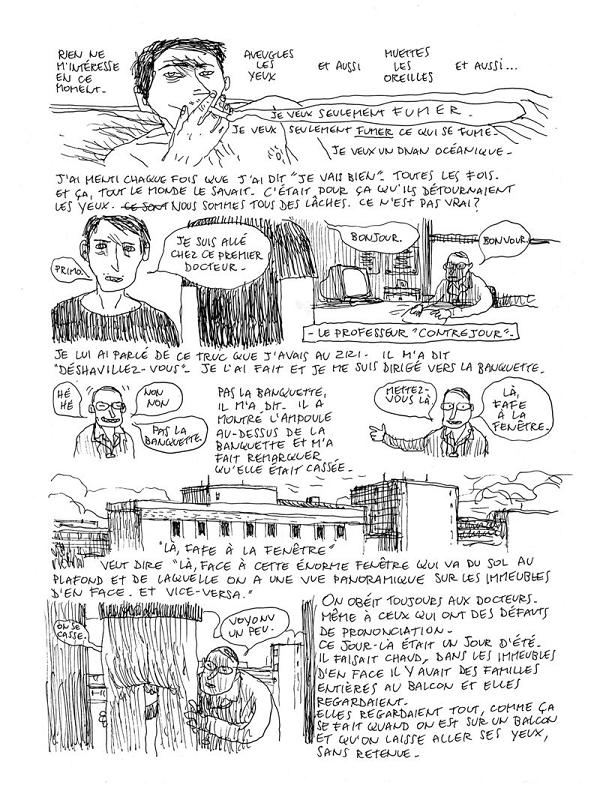 RIEN NE
M'INTÉRESSE
EN CE
MOMENT.
AVEUGLES
LES
YEUX
ET AUSSI
MUETTES
LES
OREILLES
ET AUSSI...
JE VEUX SEULEMENT FUMER.
JE VEUX SEULEMENT FUMER CE QUI SE FUME.
JE VEUX UN DIVAN OCÉANIQUE.
J'AI MENTI CHAQUE FOIS QUE J'AI DIT "JE VAIS BIEN". TOUTES LES FOIS.
ET ÇA, TOUT LE MONDE LE SAVAIT. C'ÉTAIT POUR ÇA QU'ILS DÉTOURNAIENT
LES YEUX. CE SONT NOUS SOMMES TOUS DES LÂCHES. CE N'EST PAS VRAI?
PRIMO.
JE SUIS ALLÉ
CHEZ CE PREMIER
DOCTEUR -
BONJOUR.
BONVOUR.
- LE PROFESSEUR "CONTREJOUR" -
JE LUI AI PARLÉ DE CE TRUC QUE J'AVAIS AU ZIZI. IL M'A DIT
"DÉSHAVILLEZ-VOUS". JE L'AI FAIT ET JE ME SUIS DIRIGÉ VERS LA BANQUETTE.
HÉ
HÉ
NON
NON
PAS LA
BANQUETTE.
PAS LA BANQUETTE,
IL M'A DIT. IL A
MONTRÉ L'AMPOULE
AU-DESSUS DE LA
BANQUETTE ET M'A
FAIT REMARQUER
QU'ELLE ÉTAIT CASSÉE -
METTEZ-
VOUS LÀ.
LÀ,
FAFE
À LA
FENÊTRE.
"LÀ, FAFE À LA FENÊTRE"
VEUT DIRE "LÀ, FACE À CETTE ÉNORME FENÊTRE QUI VA DU SOL AU
PLAFOND ET DE LAQUELLE ON A UNE VUE PANORAMIQUE SUR LES IMMEUBLES
D'EN FACE. ET VICE-VERSA."
ON SE
CASSE.
VOYONV
UN PEU.
ON OBÉIT TOUJOURS AUX DOCTEURS.
MÊME À CEUX QUI ONT DES DÉFAUTS
DE PRONONCIATION -
CE JOUR-LÀ ÉTAIT UN JOUR D'ÉTÉ.
IL FAISAIT CHAUD, DANS LES IMMEUBLES
D'EN FACE IL Y AVAIT DES FAMILLES
ENTIÈRES AU BALCON ET ELLES
REGARDAIENT.
ELLES REGARDAIENT TOUT, COMME ÇA
SE FAIT QUAND ON EST SUR UN BALCON
ET QU'ON LAISSE ALLER SES YEUX,
SANS RETENUE -